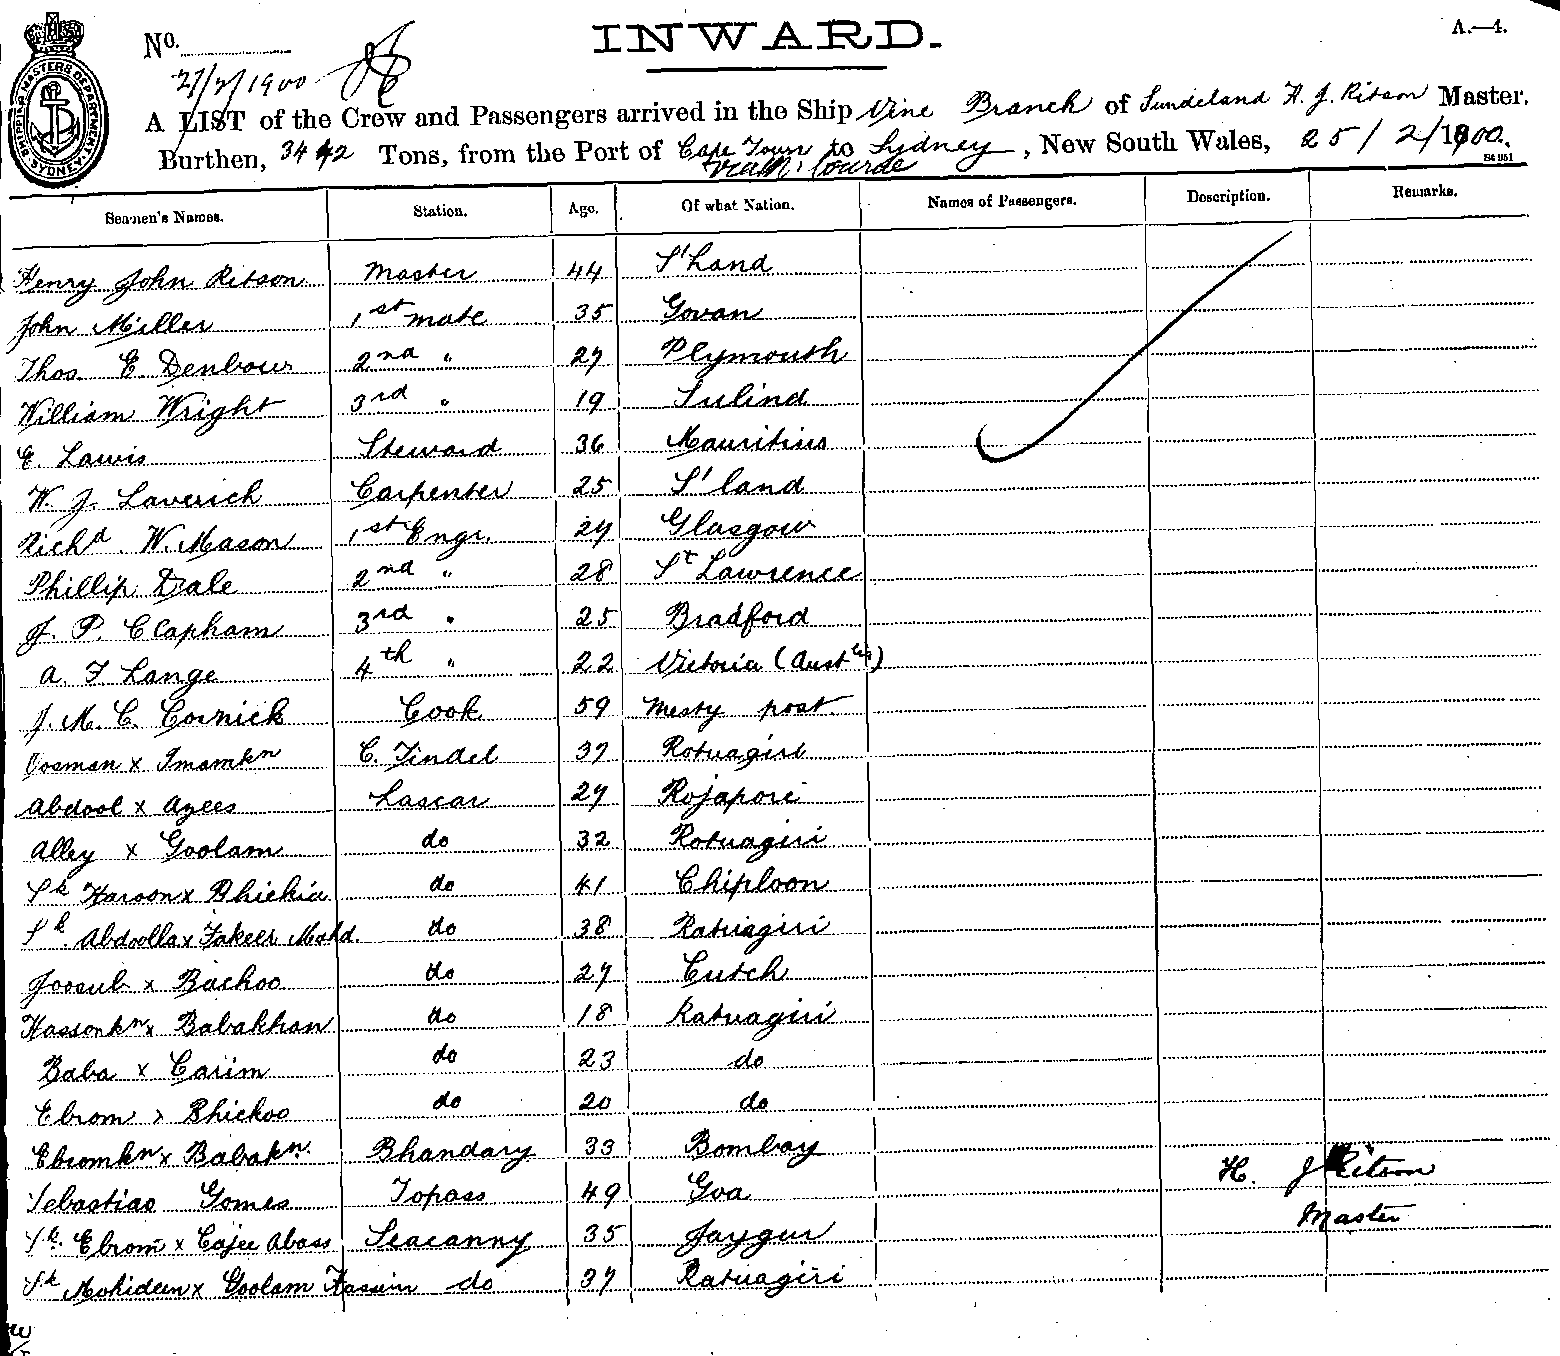 INWARD.
A.—4.
No.
27/2/1900
A LIST of the Crew and Passengers arrived in the Ship Vine Branch of Sundeland H. J. Ritson Master,
Burthen, 3442 Tons, from the Port of Cape Town to Sydney, New South Wales, 25/2/1900.
via M'bourne
SHIPPING MASTERS DEPARTMENT SYDNEY
Seamen's Names. Station. Age. Of what Nation. Names of Passengers. Description. Remarks.
Henry John Ritson Master 44 S'land
John Miller 1st Mate 35 Govan
Thos. E. Denbow 2nd " 27 Plymouth
William Wright 3rd " 19 Sulind
E. Lawis Steward 36 Mauritius
W. J. Laverich Carpenter 25 S'land
Richd. W. Mason 1st Engr. 29 Glasgow
Phillip Dale 2nd " 28 St Lawrence
J. P. Clapham 3rd " 25 Bradford
A. F Lange 4th " 22 Victoria (Aust)
J. M. C. Cornick Cook 59 Mesty post
Oosman x Imamkn C. Tindel 37 Rotuagiri
Abdool x Azees Lascar 27 Rojapore
Alley x Goolam do 32 Rotuagiri
Sk Haroon x Bhickia do 41 Chiploon
Sk. Abdoolla x Fakeer Mahd. do 38 Ratuagiri
Joosub x Bachoo do 27 Cutch
Hassonkn x Babakhan do 18 Ratuagiri
Baba x Carim do 23 do
Ebrom x Bhickoo do 20 do
Ebromkn x Babakn. Bhandary 33 Bombay
Sebastiao Gomes Topass 49 Goa
Sk. Ebrom x Cajee Abass Seacanny 35 Jaygur
Sk Mohideen x Goolam Hassein do 37 Ratuagiri
H. J Ritson
Master